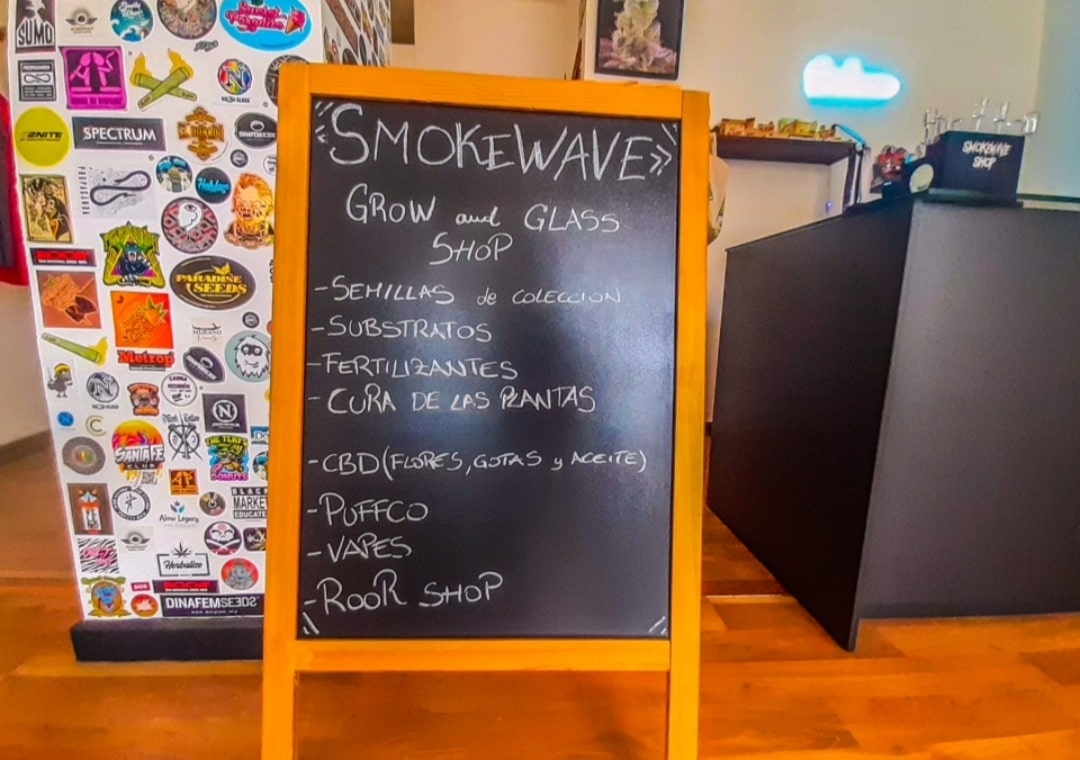 SMOKEWAVE
GROW and GLASS
SHOP
-SEMILLAS de COLECCION
-SUBSTRATOS
-FERTILIZANTES
-CURA DE LAS PLANTAS
-CBD(FLORES, GOTAS y ACEITE)
-PUFFCO
-VAPES
-ROOR SHOP
SUMO
SPECTRUM
PARADISE
SEEDS
Metrop
SANTA FE
CLUB
BLACK
MARKET
EDUCATE
Herbalize
ROOR
DINAFEMSEEDS
SMOKEWAVE
SHOP